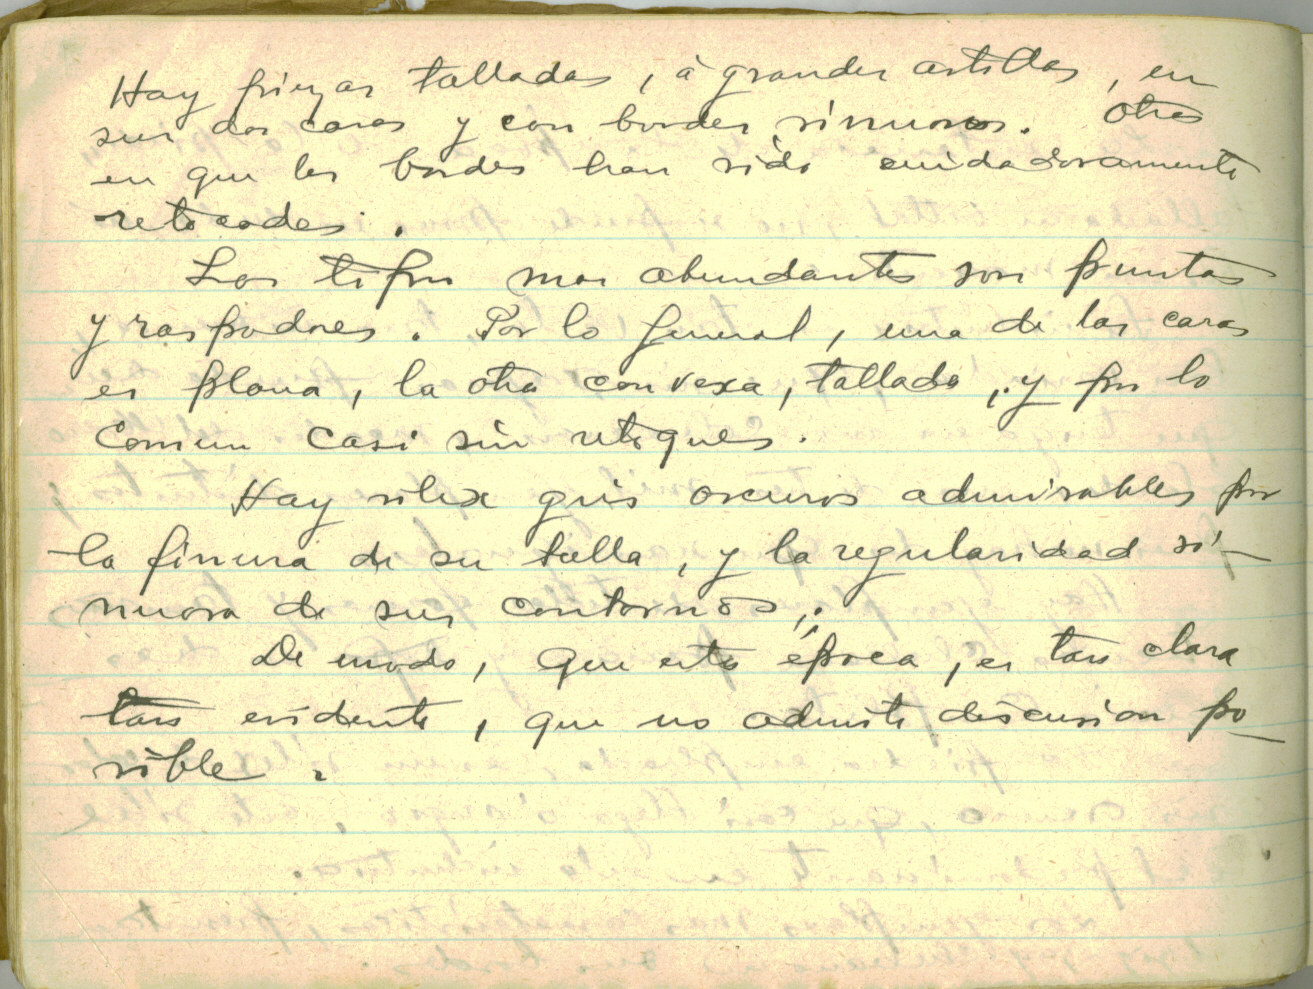 Hay piezas talladas, á grandes astillas, en
sus dos caras y con bordes sinuosos. Otras
en que los bordes han sido cuidadosamente
retocados.
Los tipos mas abundantes son puntas
y raspadores. Por lo general, una de las caras
es plana, la otra convexa, tallada, y por lo
comun casi sin retoques.
Hay silex gris oscuros admirables por
la finura de su talla, y la regularidad si-
nuosa de sus contornos.
De modo, que esta época, es tan clara
tan evidente, que no admite discusion po-
sible.